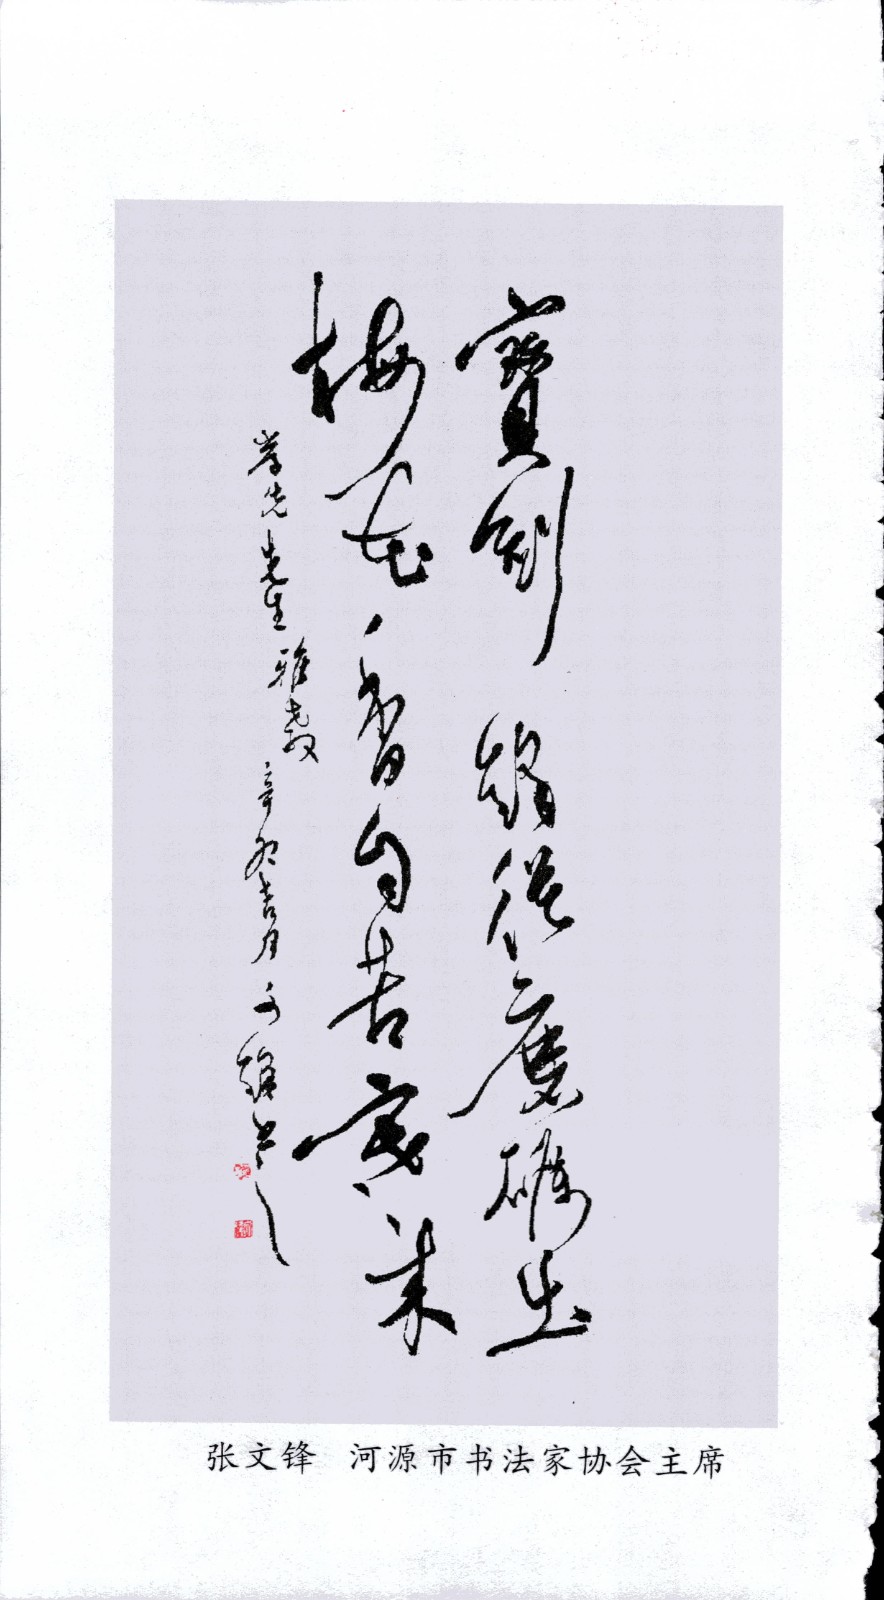 寶劍鋒從磨礪出
梅花香自苦寒来
先生雅教 辛卯吉月 文锋书
张文锋 河源市书法家协会主席